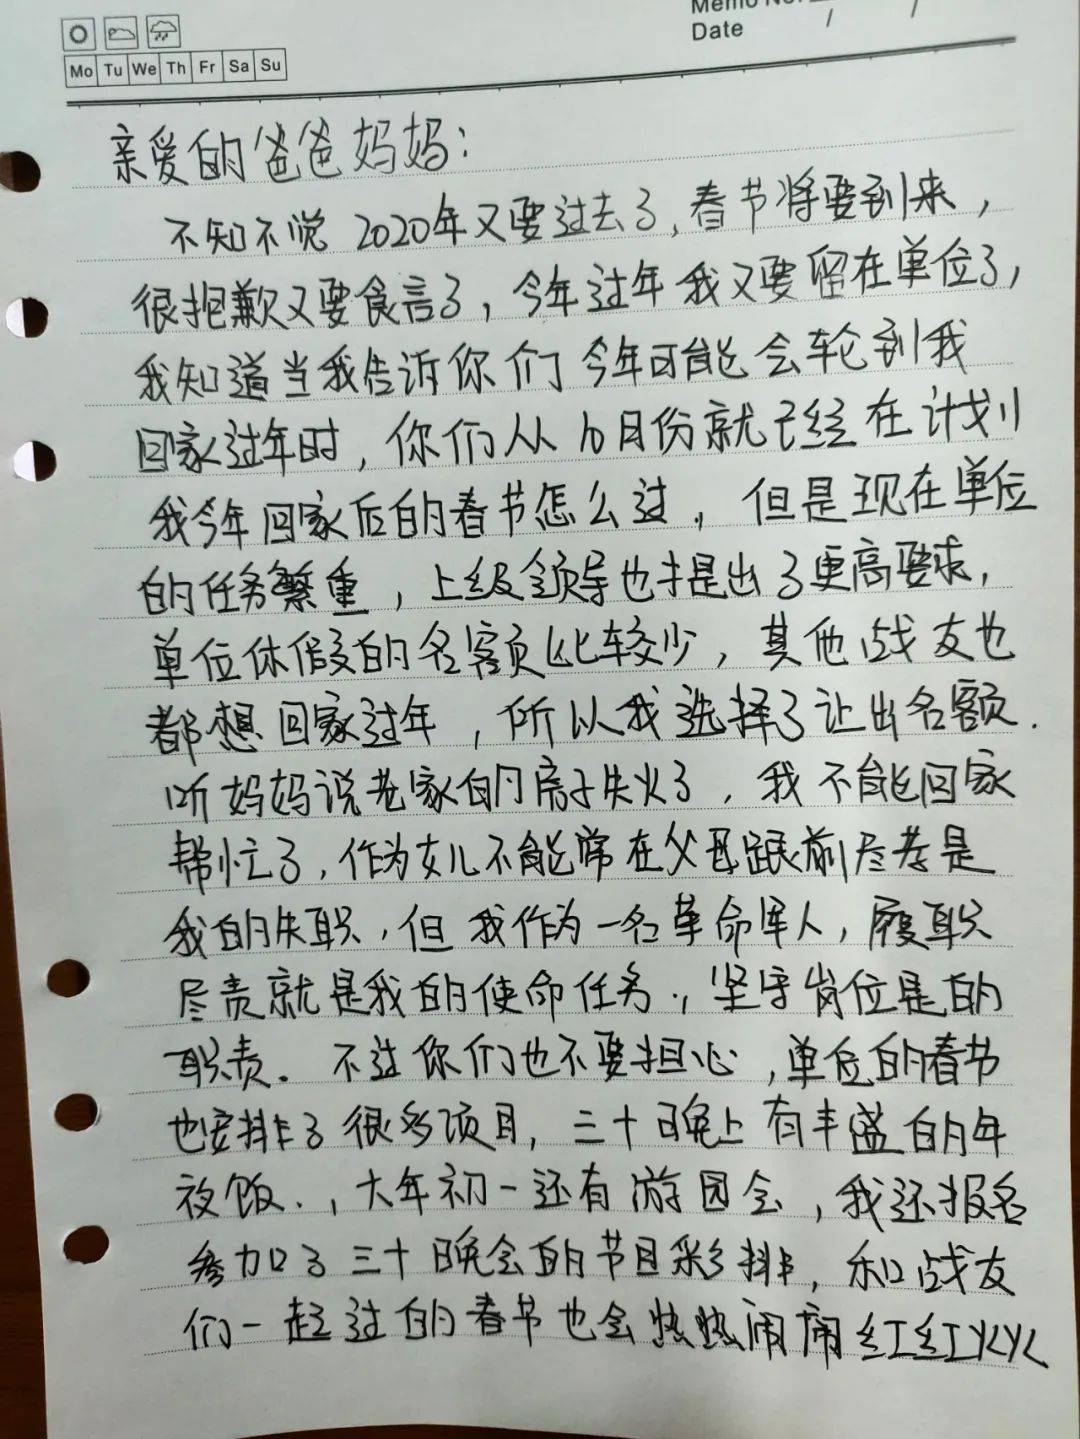 Memo No.
Date / /
Mo Tu We Th Fr Sa Su
亲爱的爸爸妈妈：
不知不觉2020年又要过去了，春节将要到来，
很抱歉又要食言了，今年过年我又要留在单位了，
我知道当我告诉你们今年可能会轮到我
回家过年时，你们从10月份就已经在计划
我今年回家后的春节怎么过，但是现在单位
的任务繁重，上级领导也提出了更高要求，
单位休假的名额比较少，其他战友也
都想回家过年，所以我选择了让出名额．
听妈妈说老家的房子失火了，我不能回家
帮忙了，作为女儿不能常在父母跟前尽孝是
我的失职，但我作为一名革命军人，履职
尽责就是我的使命任务．，坚守岗位是的
职责．不过你们也不要担心，单位的春节
也安排了很多项目，三十晚上有丰盛的年
夜饭．，大年初一还有游园会，我还报名
参加了三十晚会的节目彩排，和战友
们一起过的春节也会热热闹闹红红火火